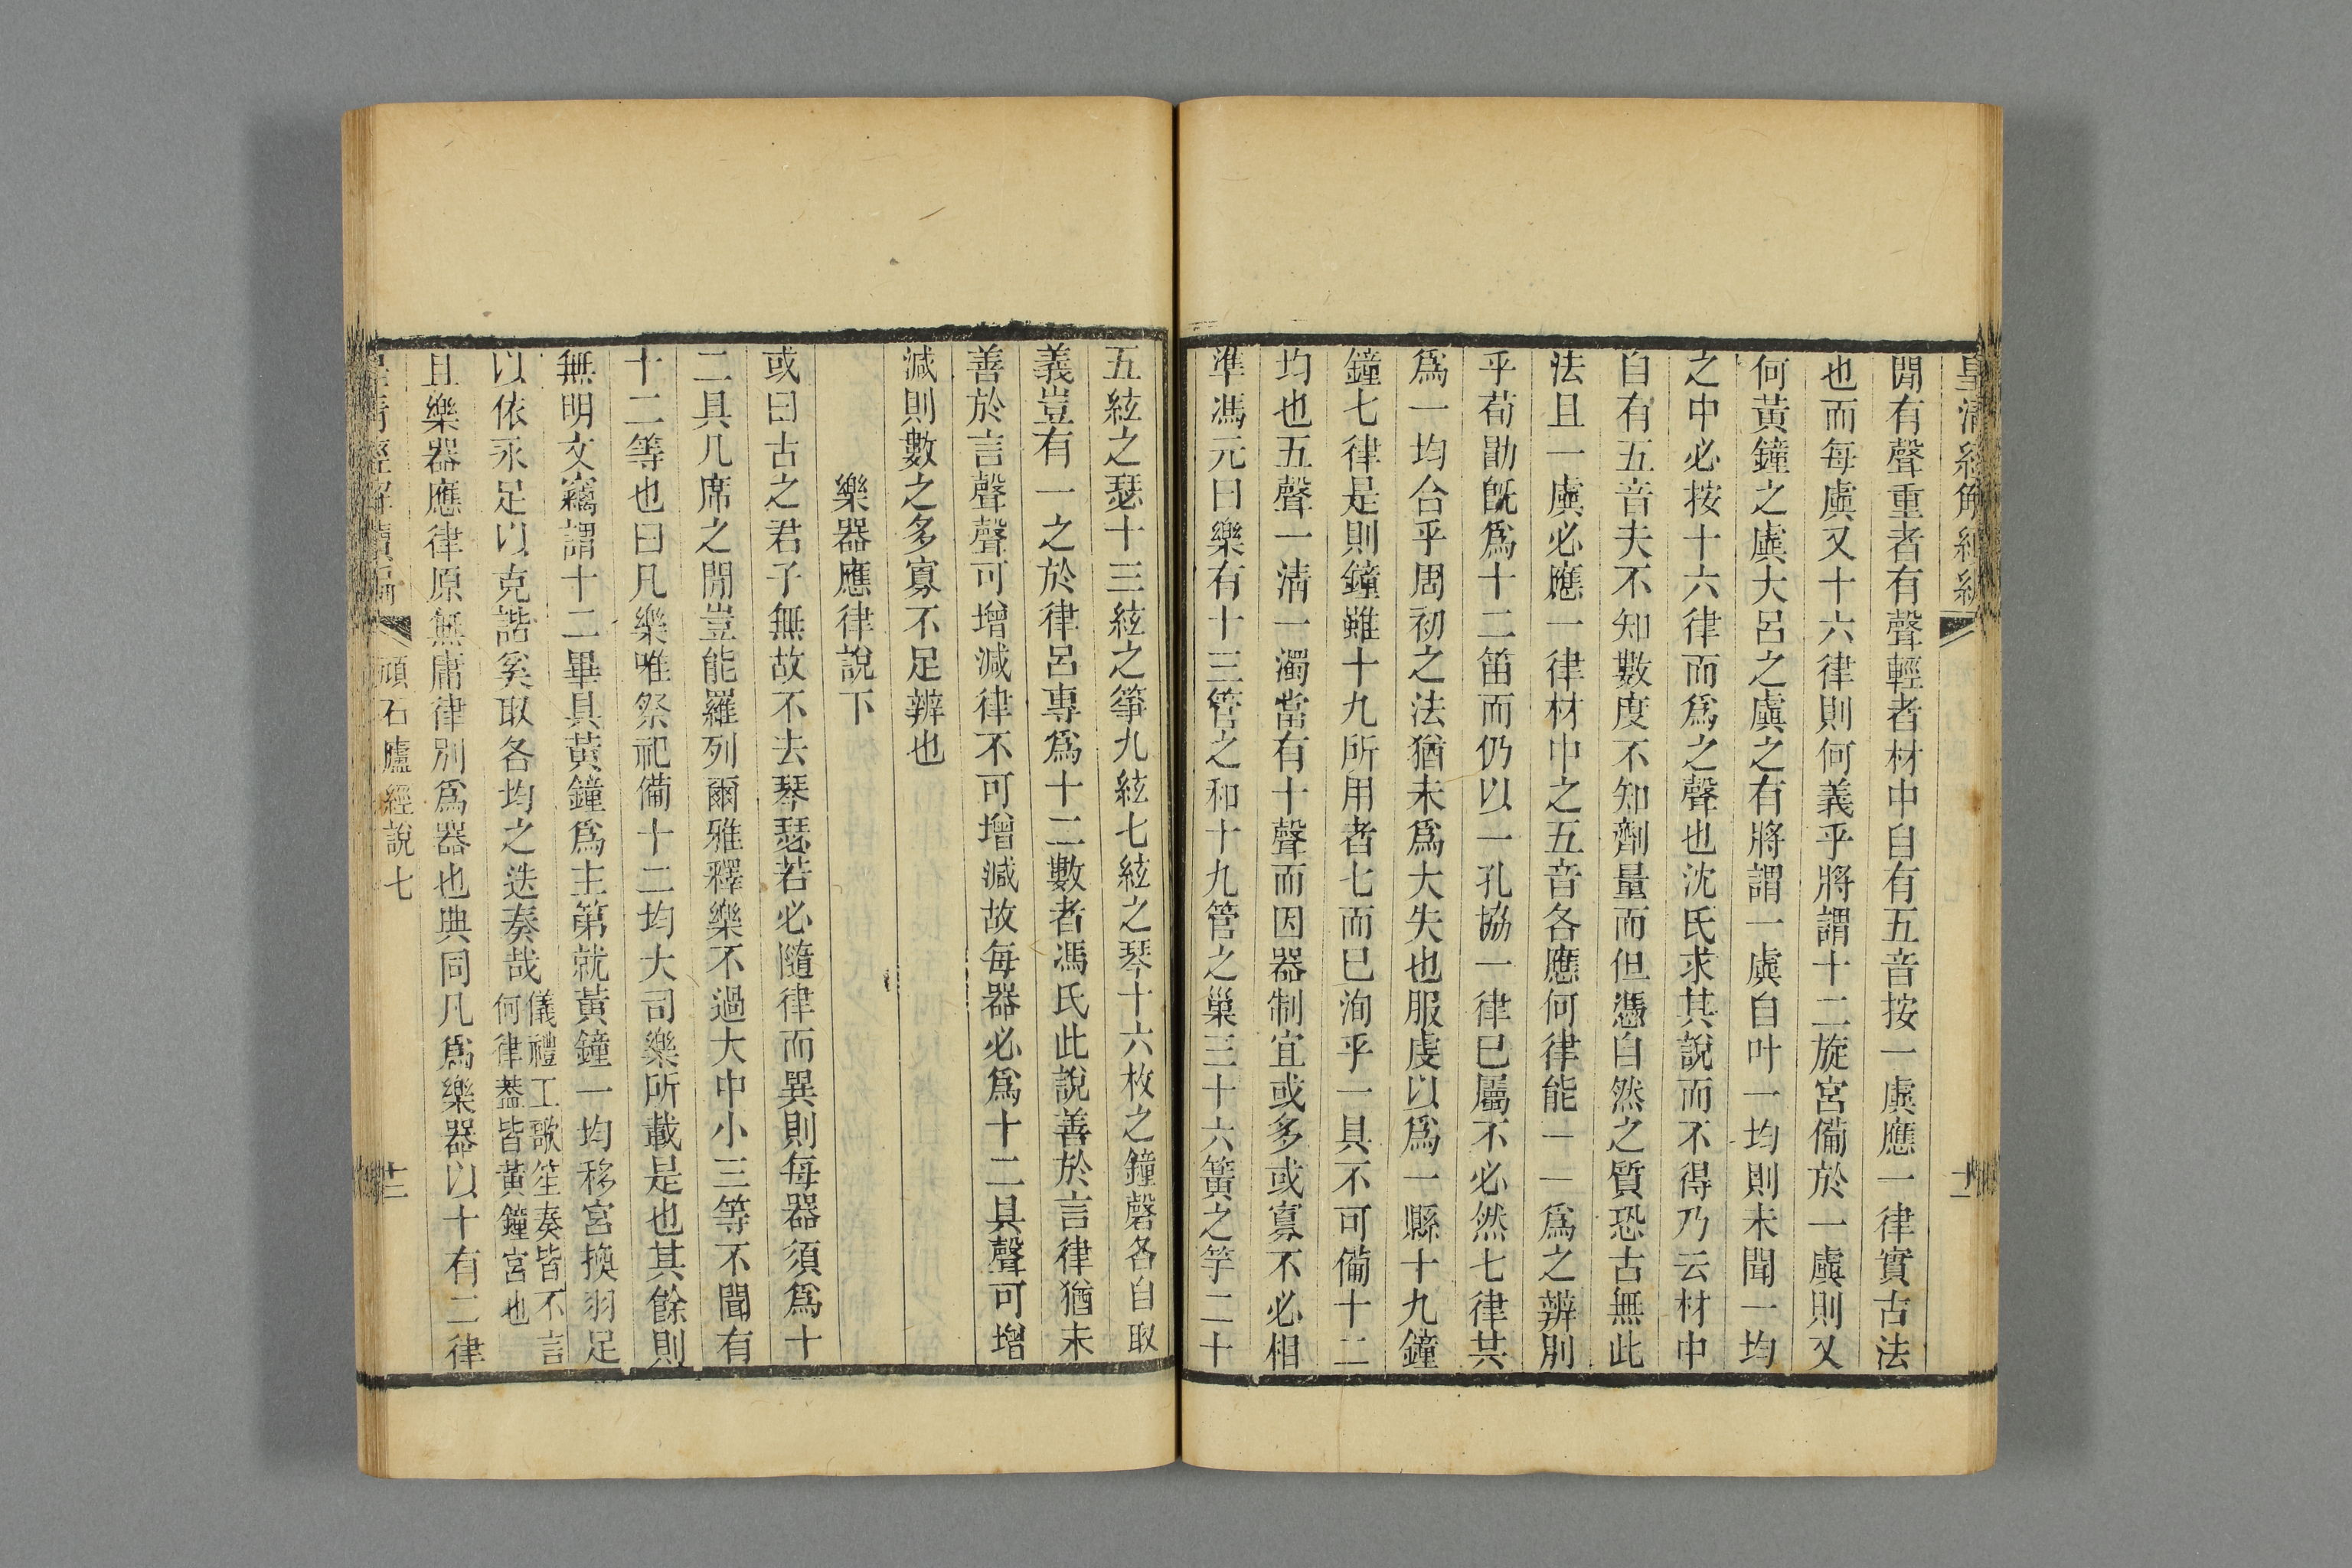 皇清經解續編
十一
閒有聲重者有聲輕者材中自有五音按一虡應一律實古法
也而每虡又十六律則何義乎將謂十二旋宮備於一虡則又
何黃鐘之虡大呂之虡之有將謂一虡自叶一均則未聞一均
之中必按十六律而爲之聲也沈氏求其說而不得乃云材中
自有五音夫不知數度不知劑量而但憑自然之質恐古無此
法且一虡必應一律材中之五音各應何律能一一爲之辨別
乎荀勖旣爲十二笛而仍以一孔協一律已屬不必然七律共
爲一均合乎周初之法猶未爲大失也服虔以爲一縣十九鐘
鐘七律是則鐘雖十九所用者七而已洵乎一具不可備十二
均也五聲一淸一濁當有十聲而因器制宜或多或寡不必相
準馮元曰樂有十三管之和十九管之巢三十六簧之竽二十
五絃之瑟十三絃之箏九絃七絃之琴十六枚之鐘磬各自取
義豈有一之於律呂專爲十二數者馮氏此說善於言律猶未
善於言聲聲可增減律不可增減故每器必爲十二具聲可增
減則數之多寡不足辨也
樂器應律說下
或曰古之君子無故不去琴瑟若必隨律而異則每器須爲十
二具几席之閒豈能羅列爾雅釋樂不過大中小三等不聞有
十二等也曰凡樂唯祭祀備十二均大司樂所載是也其餘則
無明文竊謂十二畢具黃鐘爲主第就黃鐘一均移宮換羽足
以依永足以克諧奚取各均之迭奏哉儀禮工歌笙奏皆不言
何律葢皆黃鐘宮也
且樂器應律原無庸律別爲器也典同凡爲樂器以十有二律
皇清經解續編
頑石廬經說七
十二